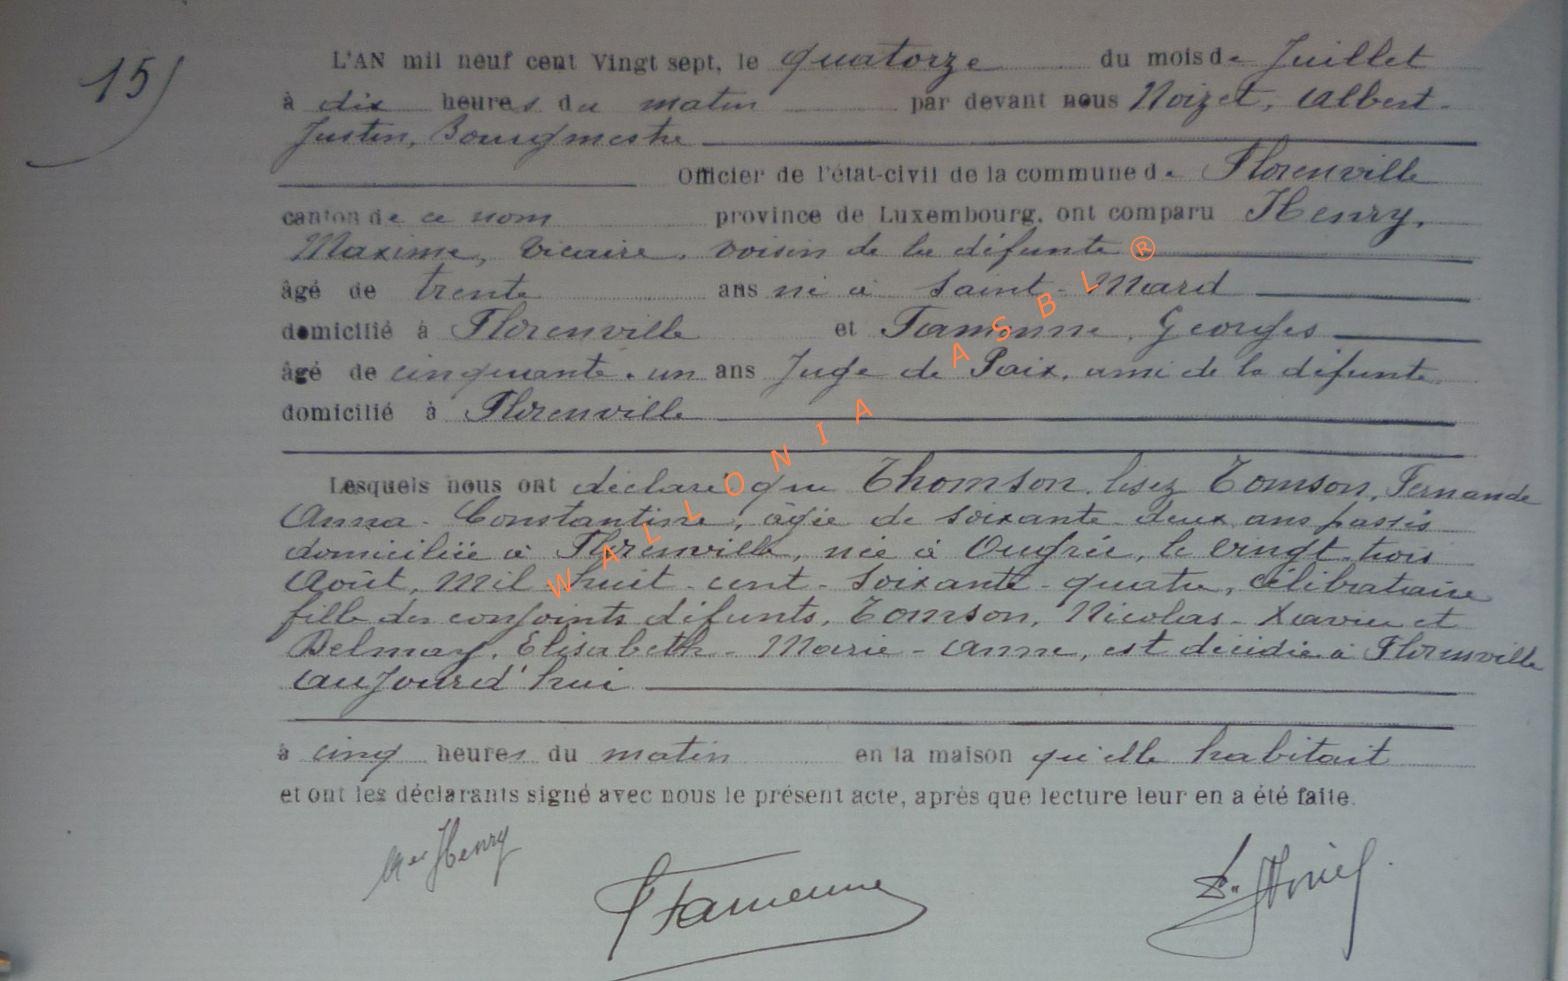 15
L'AN mil neuf cent Vingt sept, le quatorze du mois de Juillet
à dix heures du matin par devant nous Noizet, Albert-
Justin, Bourgmestre
Officier de l'état-civil de la commune de Florenville
canton de ce nom province de Luxembourg, ont comparu Henry,
Maxime, Vicaire, voisin de la défunte
âgé de trente ans né à Saint-Mard
domicilié à Florenville et Famenne, Georges
âgé de cinquante-un ans Juge de Paix, ami de la défunte
domicilié à Florenville
Lesquels nous ont déclaré que Thomson, lisez Tomson, Fernande
Anna-Constantine, âgée de soixante-deux ans passés
domiciliée à Florenville, née à Ougrée, le vingt-trois
Août, mil-huit-cent-soixante-quatre, célibataire
fille des conjoints défunts, Tomson, Nicolas-Xavier et
Delmay, Elisabeth-Marie-Anne, est décédée à Florenville
aujourd'hui
à cinq heures du matin en la maison qu'elle habitait
et ont les déclarants signé avec nous le présent acte, après que lecture leur en a été faite.
Henry
Famenne
WALLONIA ASBL ®